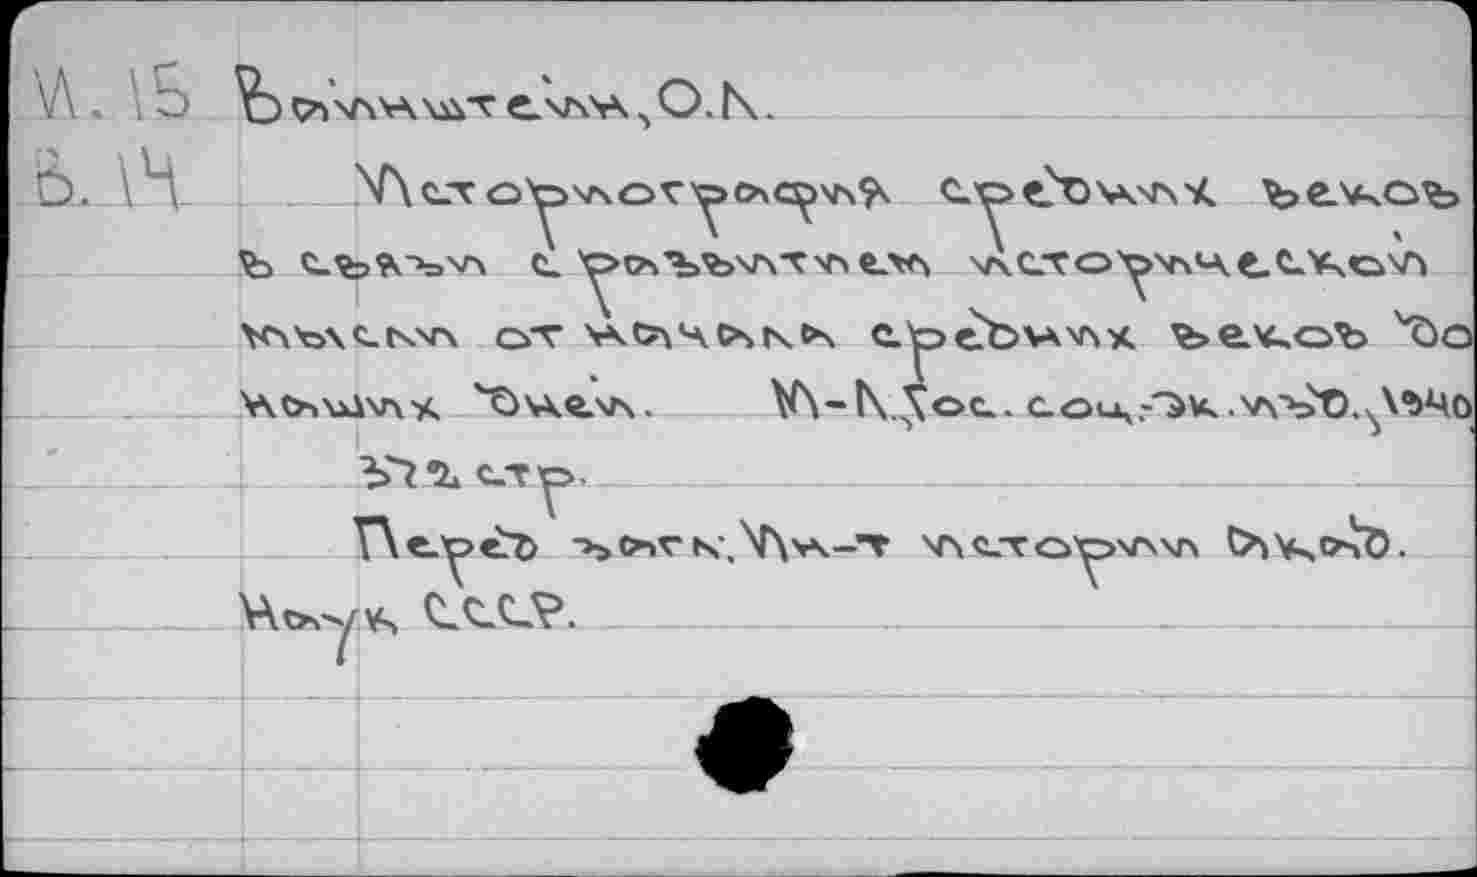 И. 15 Вайнштейн, О.Л.
В. 14 Историография средних веков
в связи с развитием исторической
мысли от начала средних веков до
наших дней. М-Л., Гос. соц.-эк. изд., 1940,
372 стр.
Перед загл.: Ин-т истории Акад.
Наук СССР.